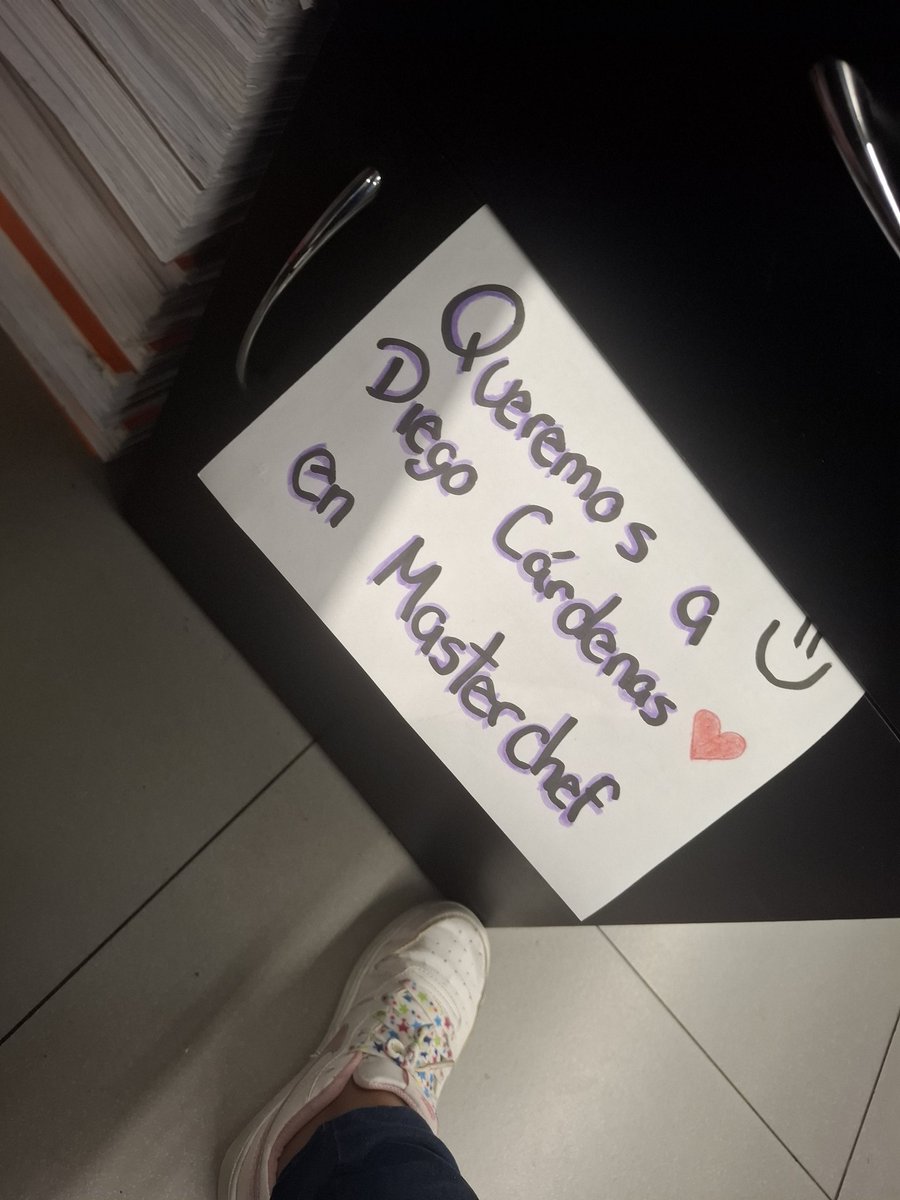 Queremos a
Diego Cárdenas
en Masterchef